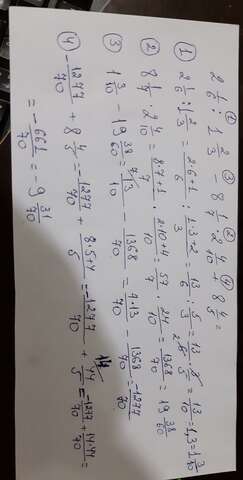 ① ③ ② ④
2 1/6 : 1 2/3 - 8 1/7 · 2 4/10 + 8 4/5 =
① 2 1/6 : 1 2/3 = 2·6+1/6 : 1·3+2/3 = 13/6 : 5/3 = 13/10 = 1,3 = 1 3/10
② 8 1/7 · 2 4/10 = 8·7+1/7 · 2·10+4/10 = 57/7 · 24/10 = 1368/70 = 19 38/60
③ 1 3/10 - 19 38/60 = 13/10 - 1368/70 = 7·13/70 - 1368/70 = -1277/70
④ -1277/70 + 8 4/5 = -1277/70 + 8·5+4/5 = -1277/70 + 44/5 = -1277/70 + 14·44/70 =
= -661/70 = 9 31/70